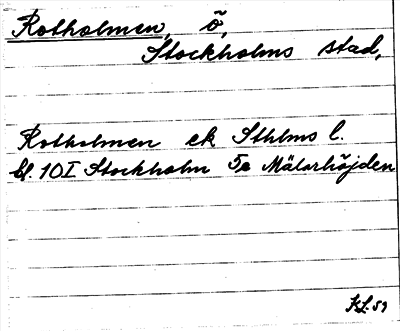 Rotholmen, ö,
Stockholms stad,
Rotholmen ek Sthlms l.
bl. 10I Stockholm 5a Mälarhöjden
KL.59